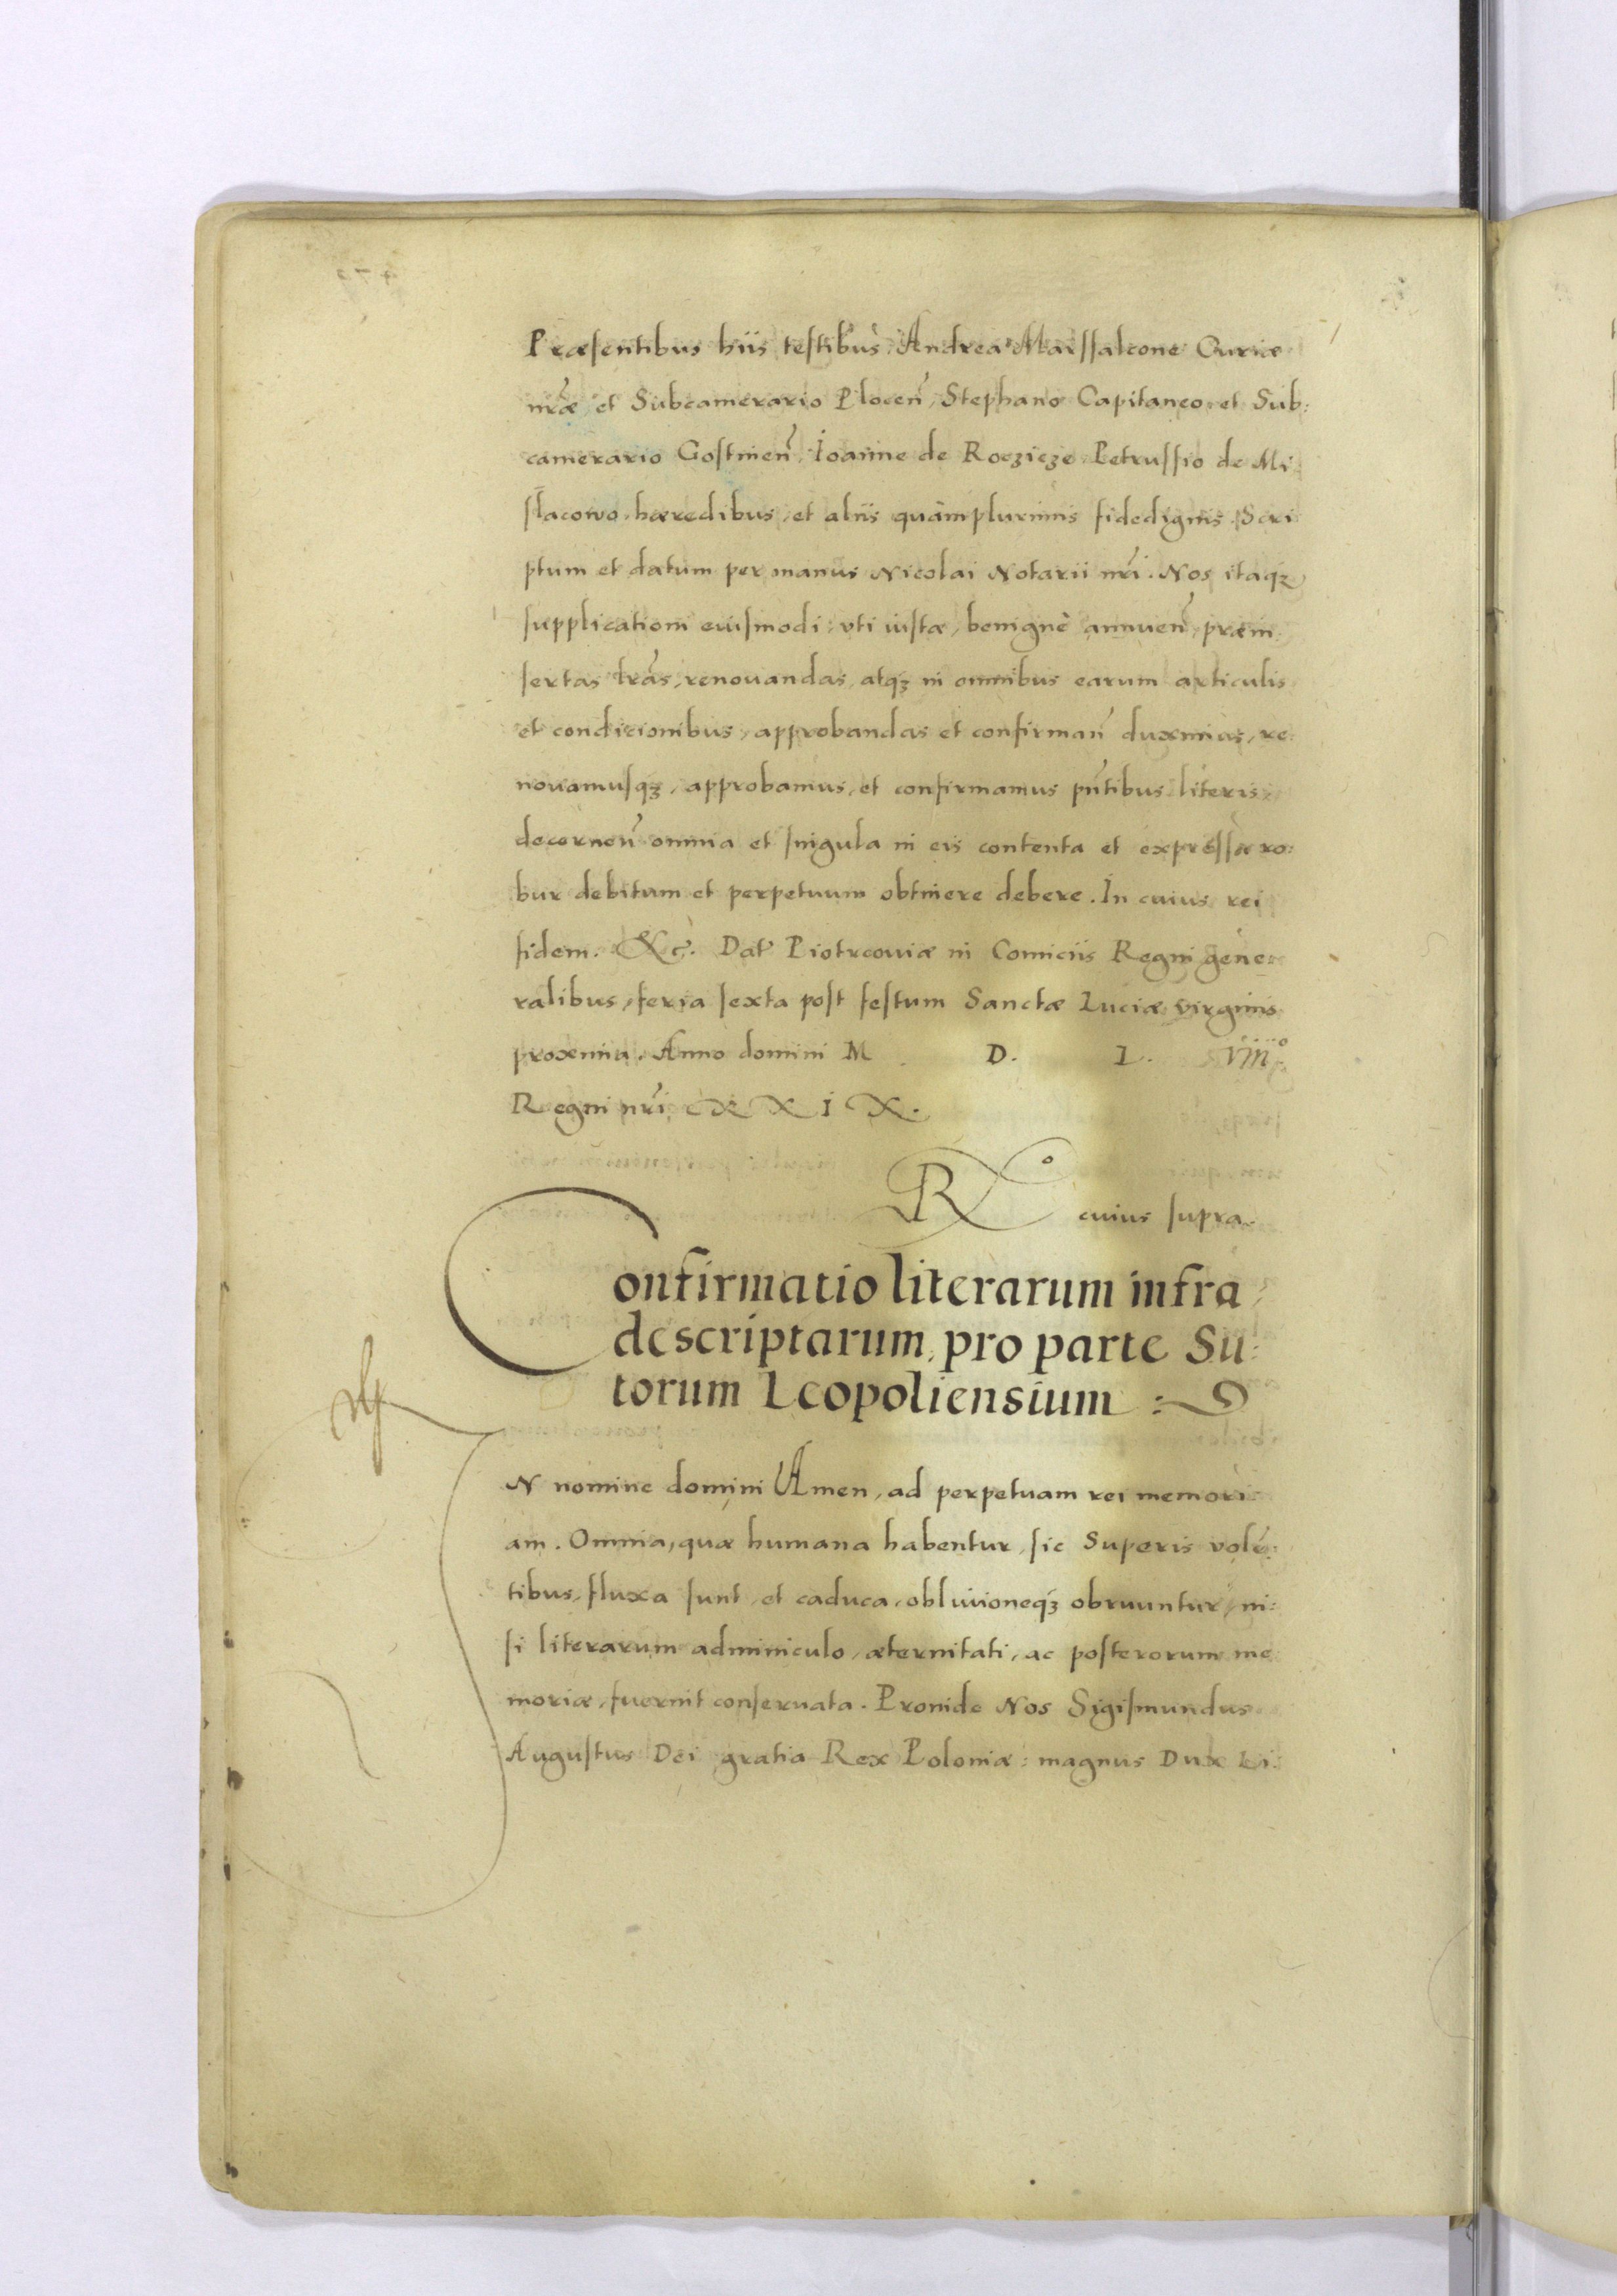 Præsentibus hiis testibus, Andrea Marssalcone Curiæ
nr̃æ et Subcamerario Plocen̄, Stephano Capitaneo et Sub:
camerario Gostinen̄, Ioanne de Rocziczo Petrussio de Mi
slacowo, hæredibus, et aliis quàmplurimis fidedignis. Scri
ptum et datum per manus Nicolai Notarii nr̃i. Nos itaqꝫ
supplicationi eiusmodi, vti iustæ, benignè annuen̄, præin
sertas lr̃as, renouandas, atqꝫ in omnibus earum articulis
et condicionibus, approbandas et confirman̄ duximus, re:
nouamusqꝫ, approbamus, et confirmamus pn̄tibus literis,
decernen̄ omnia et singula in eis contenta et expressa ro:
bur debitum et perpetuum obtinere debere. In cuius rei
fidem. &c. Dat̃ Piotrcouiæ in Comiciis Regni gene:
ralibus, feria sexta post festum Sanctæ Luciæ virginis
proxima. Anno domini M D. L. viii°.
Regni nr̃i XXIX.
R° cuius supra.
Confirmatio literarum infra
descriptarum, pro parte Su:
torum Leopoliensium :
IN nomine domini Amen, ad perpetuam rei memori
am. Omnia, quæ humana habentur, sic Superis volē:
tibus, fluxa sunt, et caduca, obliuioneqꝫ obruuntur, ni:
si literarum adminiculo, æternitati, ac posterorum me
moriæ, fuerint conseruata. Proinde Nos Sigismundus
Augustus Dei gratia Rex Poloniæ: magnus Dux Li: